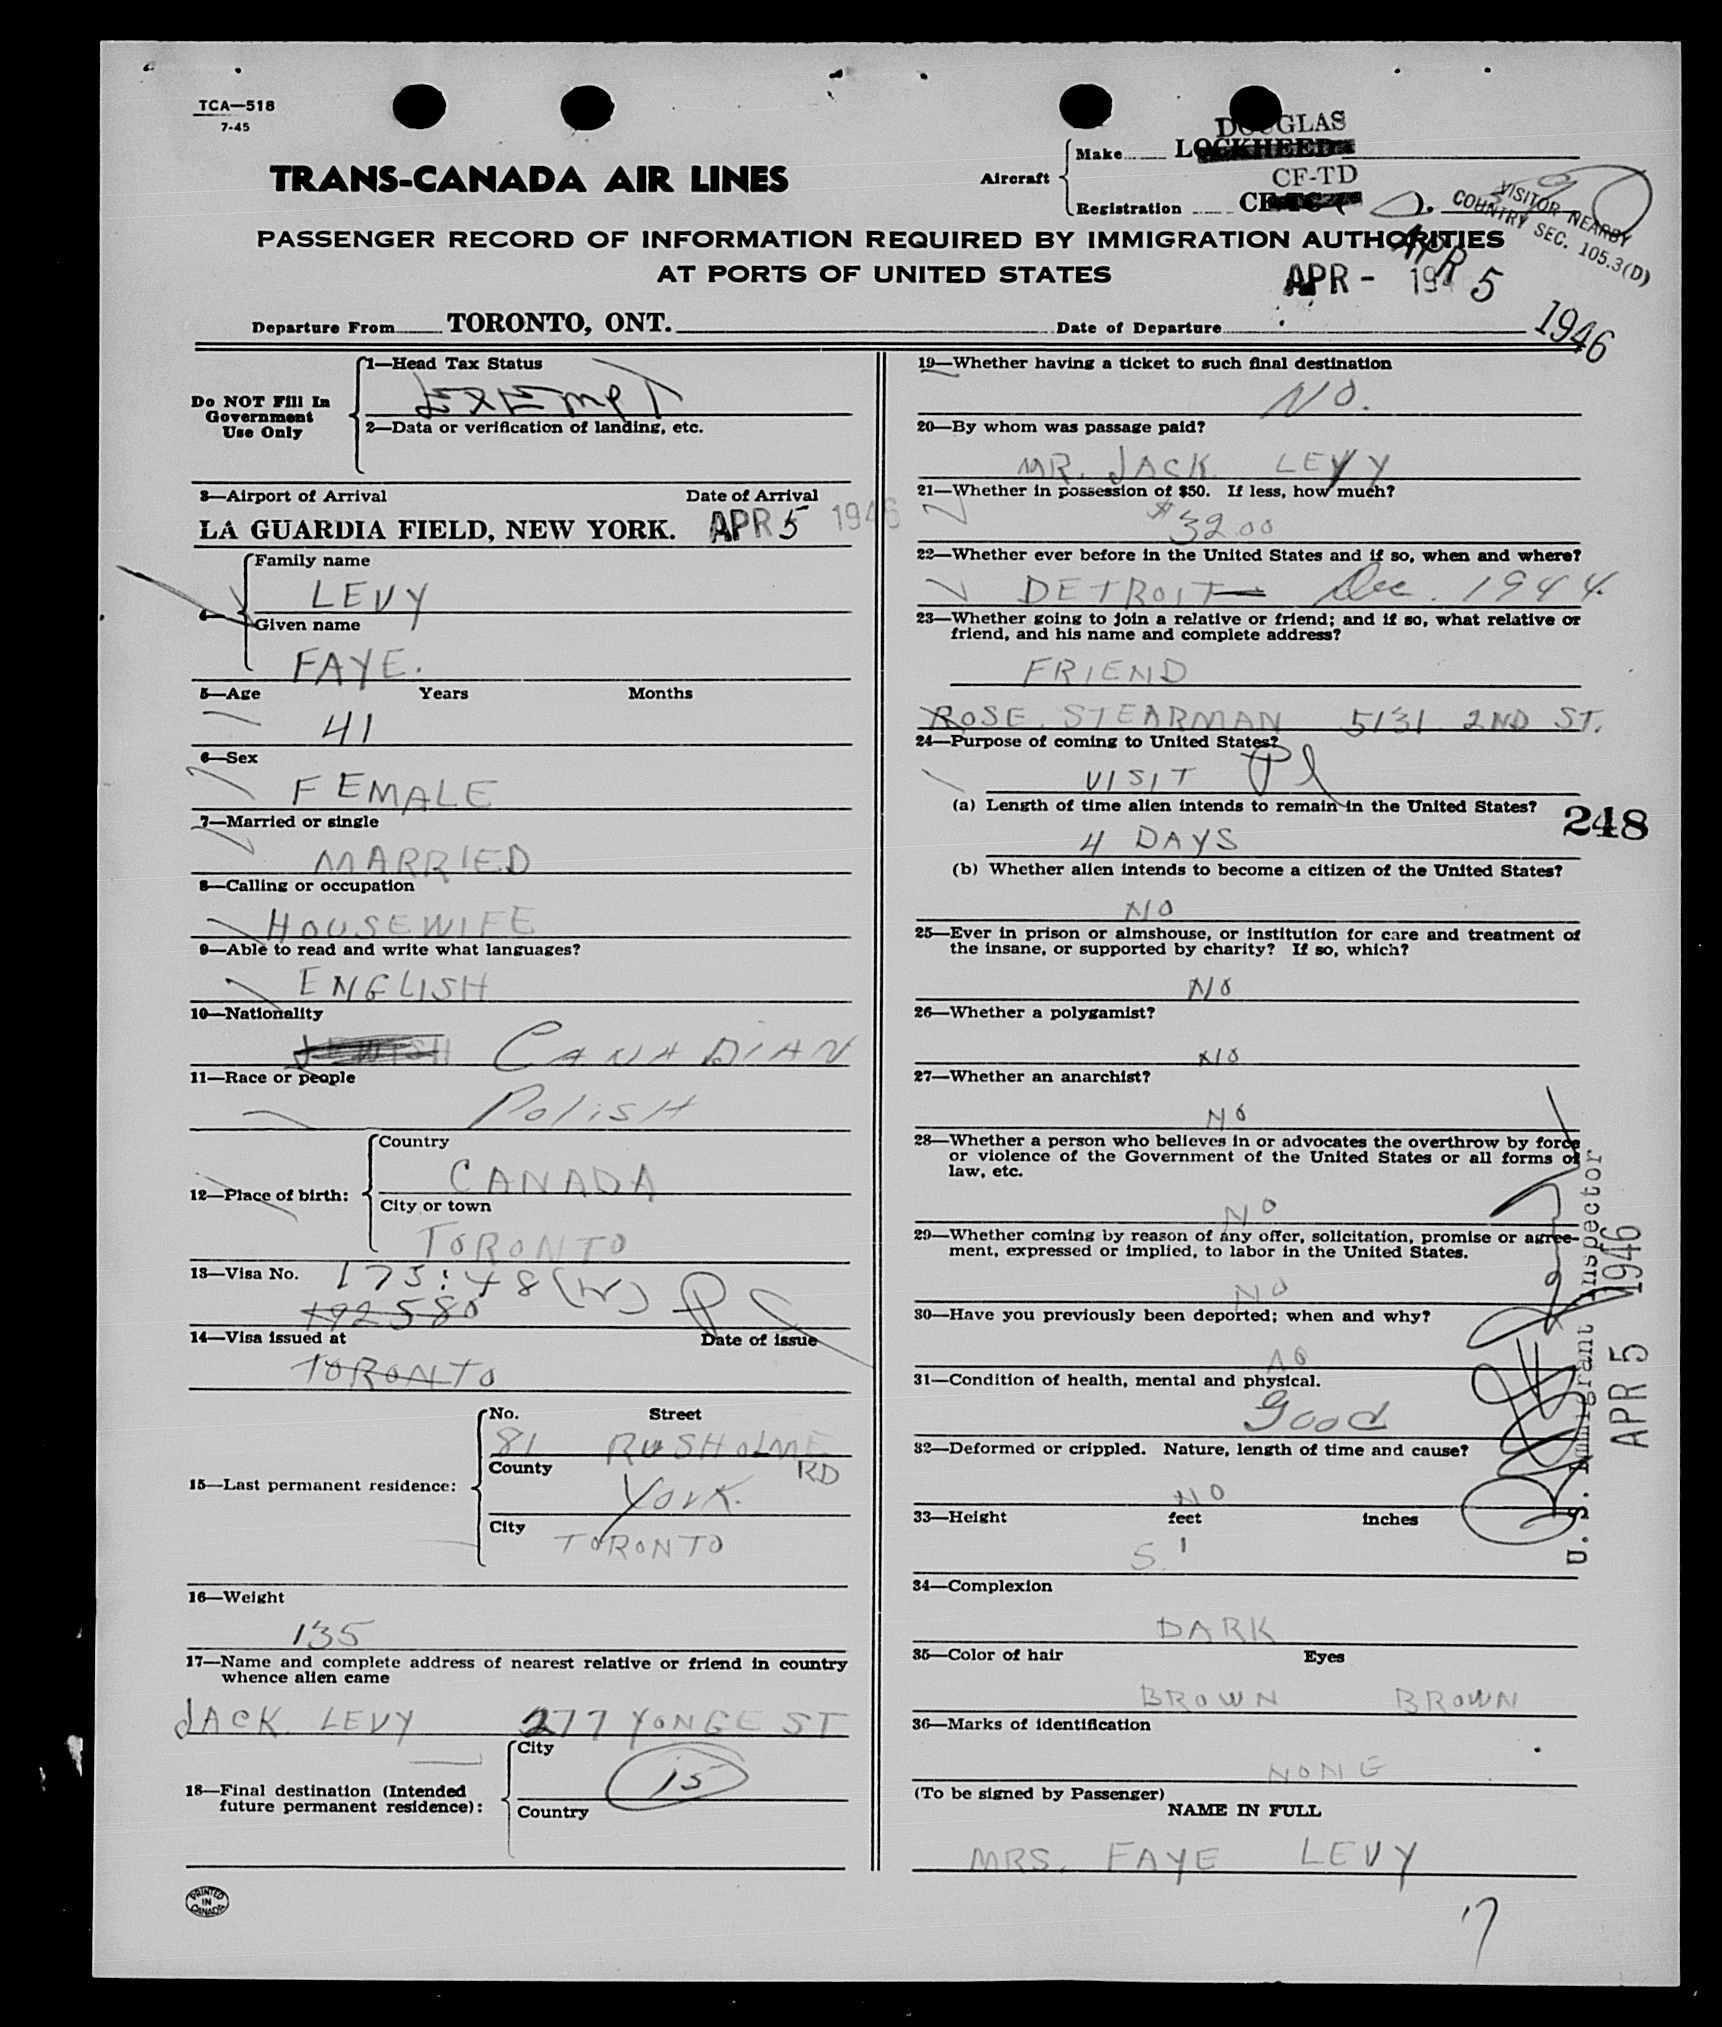 TCA—518
7-45
TRANS-CANADA AIR LINES
DOUGLAS
Aircraft
Make LOCKHEED
CF-TD
Registration CF-TC
VISITOR NEARBY
COUNTRY SEC. 105.3(D)
PASSENGER RECORD OF INFORMATION REQUIRED BY IMMIGRATION AUTHORITIES
AT PORTS OF UNITED STATES
APR - 194
APR 5 1946
Departure From TORONTO, ONT. Date of Departure
Do NOT Fill In
Government
Use Only
1—Head Tax Status
EXEMPT
2—Data or verification of landing, etc.
3—Airport of Arrival Date of Arrival
LA GUARDIA FIELD, NEW YORK. APR 5 1946
4—
Family name
LEVY
Given name
FAYE.
5—Age Years Months
41
6—Sex
FEMALE
7—Married or single
MARRIED
8—Calling or occupation
HOUSEWIFE
9—Able to read and write what languages?
ENGLISH
10—Nationality
JEWISH CANADIAN
11—Race or people
POLISH
12—Place of birth:
Country
CANADA
City or town
TORONTO
13—Visa No.
192580
14—Visa issued at Date of issue
TORONTO
15—Last permanent residence:
No. Street
81 RUSHOLME
RD
County
York.
City
TORONTO
16—Weight
135
17—Name and complete address of nearest relative or friend in country
whence alien came
JACK LEVY 277 YONGE ST
18—Final destination (Intended
future permanent residence):
City
15
Country
PRINTED
IN
CANADA
19—Whether having a ticket to such final destination
NO.
20—By whom was passage paid?
MR. JACK LEVY
21—Whether in possession of $50. If less, how much?
$32.00
22—Whether ever before in the United States and if so, when and where?
DETROIT Dec. 1944.
23—Whether going to join a relative or friend; and if so, what relative or
friend, and his name and complete address?
FRIEND
ROSE STEARMAN 5131 2ND ST.
24—Purpose of coming to United States?
VISIT
(a) Length of time alien intends to remain in the United States?
4 DAYS
248
(b) Whether alien intends to become a citizen of the United States?
NO
25—Ever in prison or almshouse, or institution for care and treatment of
the insane, or supported by charity? If so, which?
NO
26—Whether a polygamist?
NO
27—Whether an anarchist?
NO
28—Whether a person who believes in or advocates the overthrow by force
or violence of the Government of the United States or all forms of
law, etc.
NO
29—Whether coming by reason of any offer, solicitation, promise or agree-
ment, expressed or implied, to labor in the United States.
NO
30—Have you previously been deported; when and why?
NO
31—Condition of health, mental and physical.
Good
32—Deformed or crippled. Nature, length of time and cause?
NO
33—Height feet inches
5'
34—Complexion
DARK
35—Color of hair Eyes
BROWN BROWN
36—Marks of identification
NONE
(To be signed by Passenger)
NAME IN FULL
MRS. FAYE LEVY
U. S. Immigrant Inspector
APR 5 1946